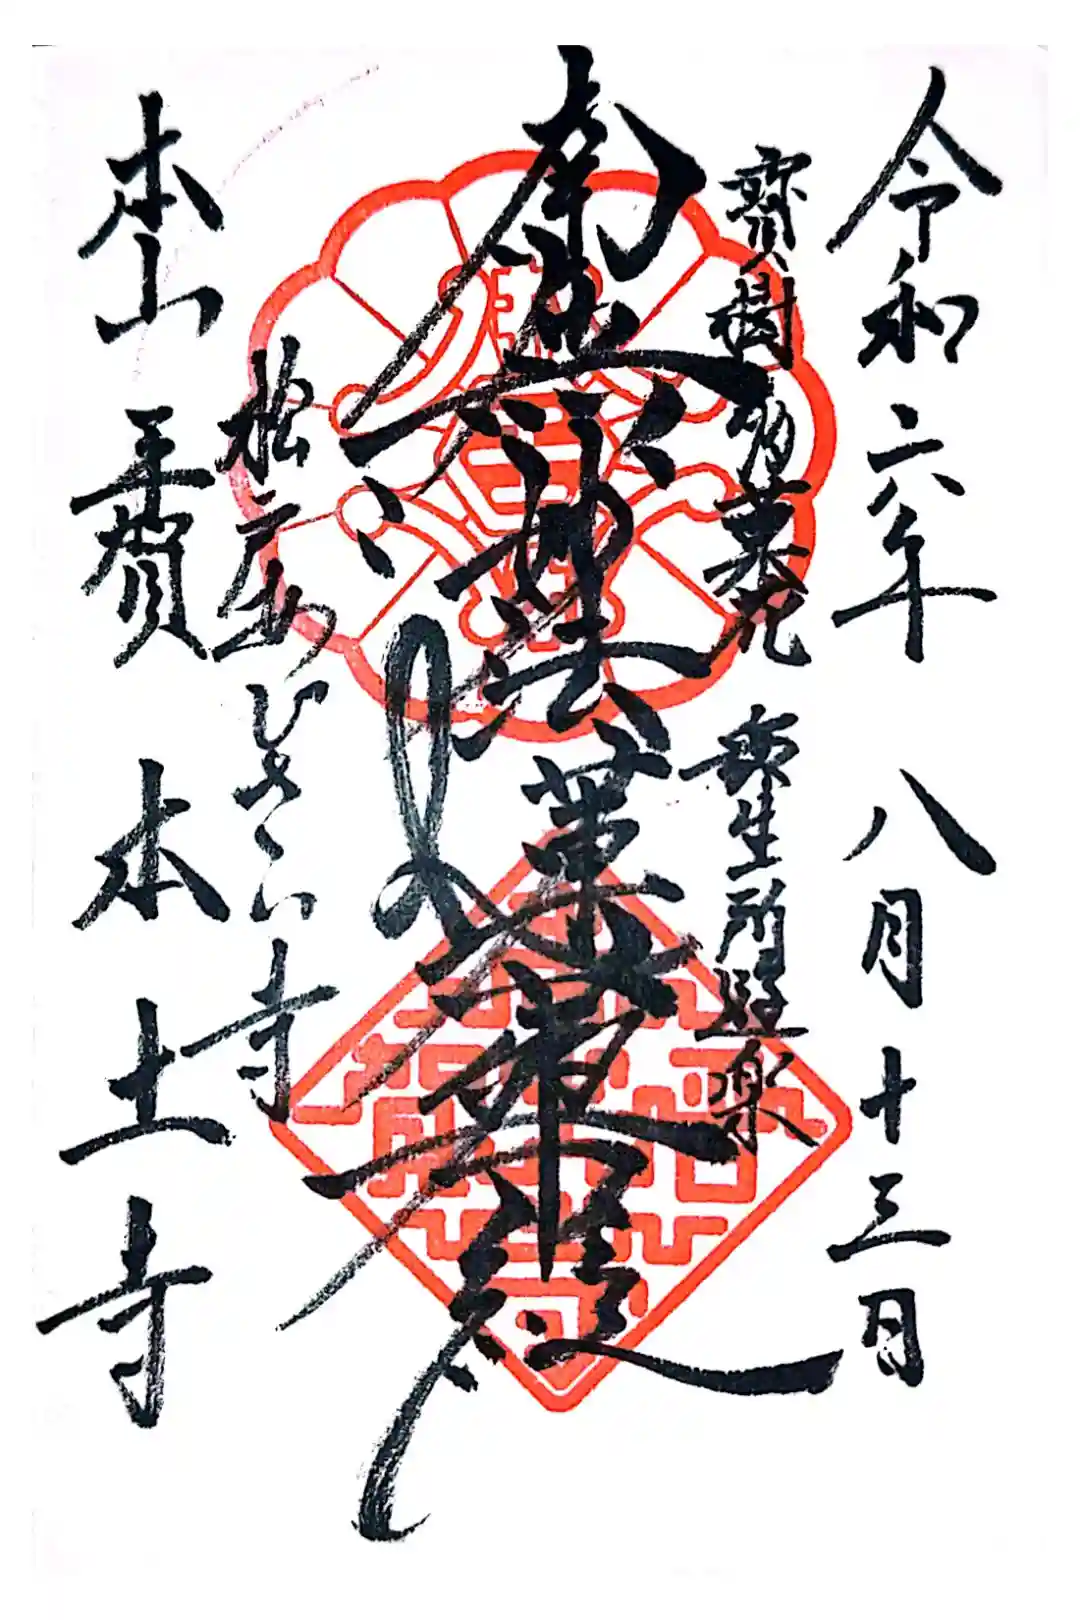 令和六年 八月十三日
寳樹多華菓 衆生所遊楽
南無妙法蓮華経
松戸あぢさい寺
本山 平賀 本土寺